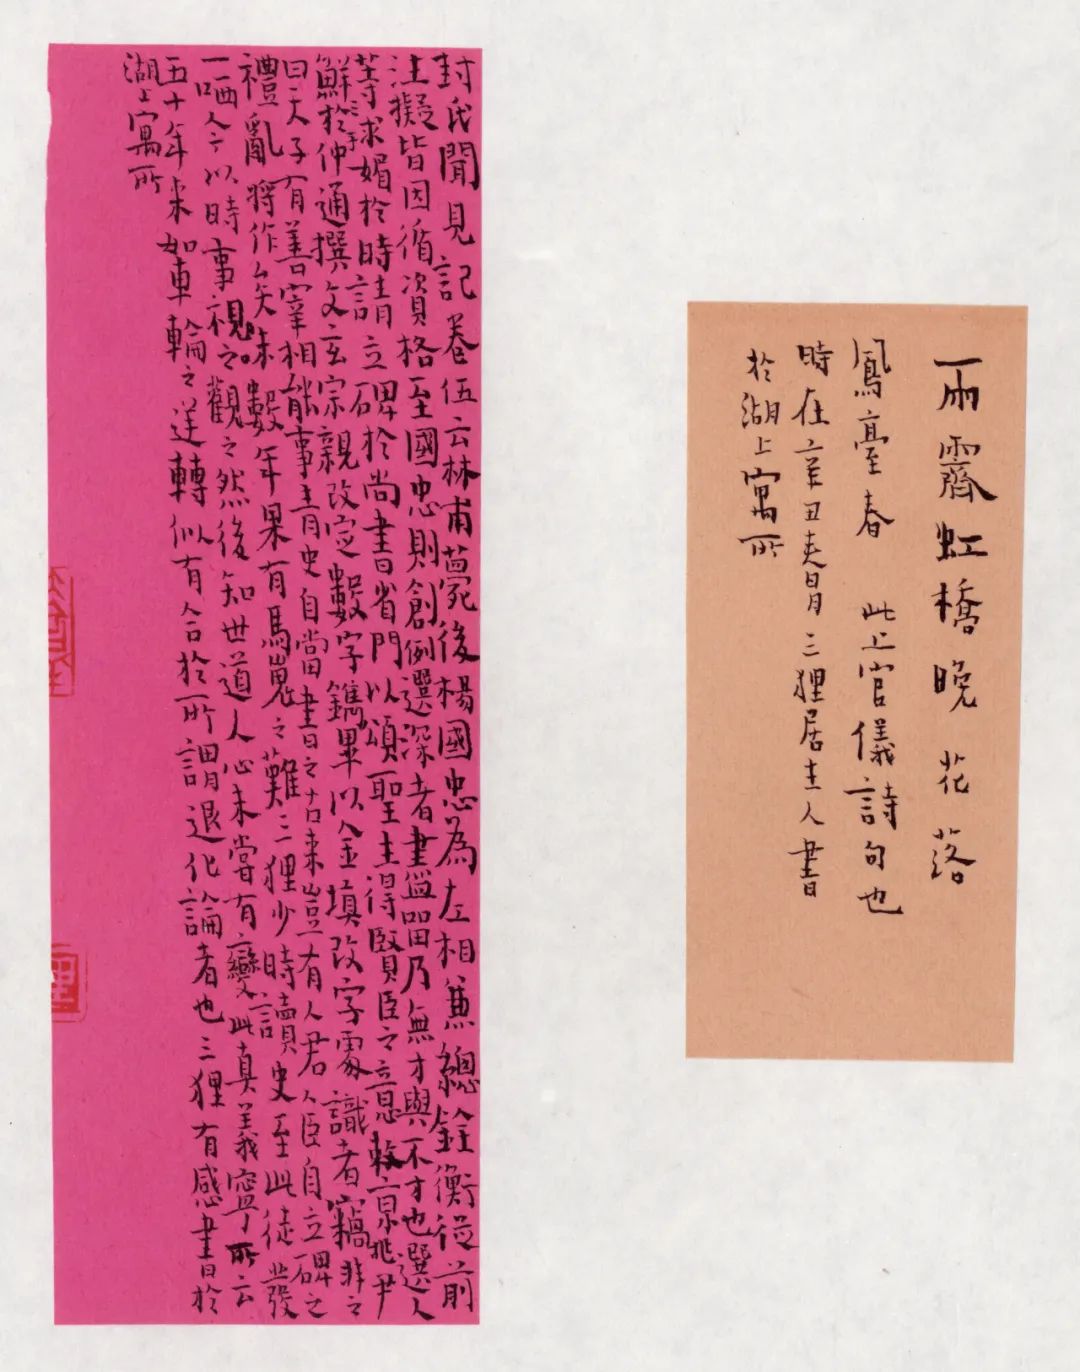 雨霽虹橋晚花落
鳳臺春 此上官儀詩句也
時在辛丑三狸居主人書
於湖上寓所
封氏聞見記卷伍云林甫薨後楊國忠為左相兼總銓衡從前
注擬皆因循資格至國忠則創例選深者盡留乃無才與不才也選人
等求媚於時請立碑於尚書省門以頌聖主得賢臣之意敕京兆尹
鮮於仲通撰文玄宗親改定數字鐫畢以金填改字處識者竊非之
曰天子有善宰相能事青史自當書之古來豈有人君人臣自立碑之
禮亂將作矣未數年果有馬嵬之難三狸少時讀史至此徒發
一哂今以時事視之觀之然後知世道人心未嘗有變此真義寧所云
五十年來如車輪之逆轉似有合於所謂退化論者也三狸有感書於
湖上寓所